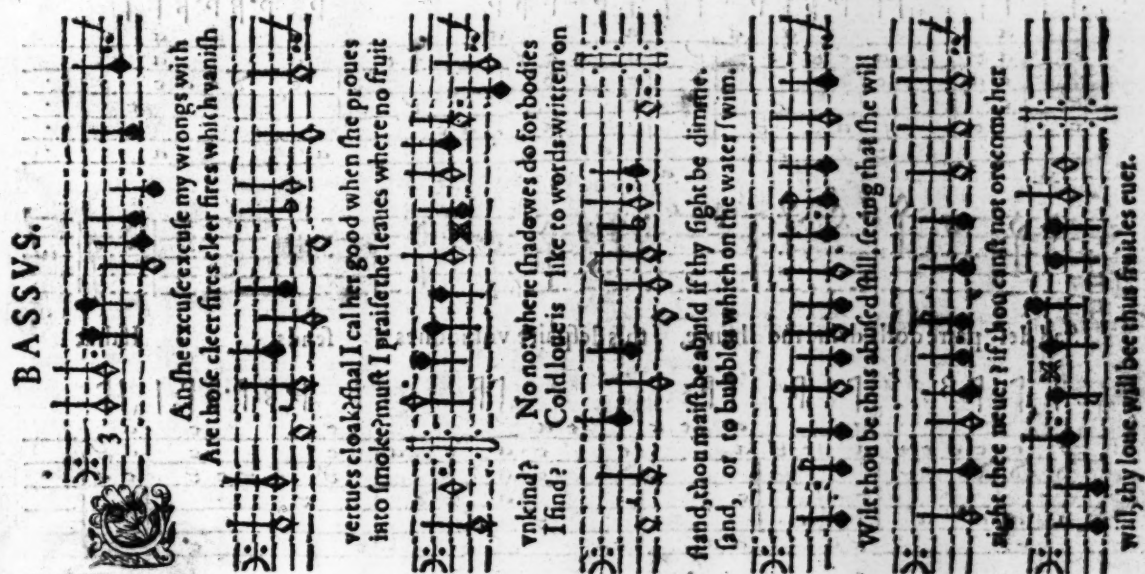 BASSVS.
3
CAn ſhe excuſe excuſe my wrongs with
Are thoſe cleer fires cleer fires which vaniſh
vertues cloak? ſhal I cal her good when ſhe proues
into ſmoke? muſt I praiſe the leaues where no fruit
vnkind? No no: where ſhadowes do for bodies
I find? Cold loue is like to words written on
ſtand, thou maiſt be abuiſd if thy ſight be dimme.
ſand, or to bubbles which on the water ſwim.
Wilt thou be thus abuſed ſtill, ſeeing that ſhe will
right thee neuer? if thou canſt not orecome her
will, thy loue will bee thus fruitles euer.